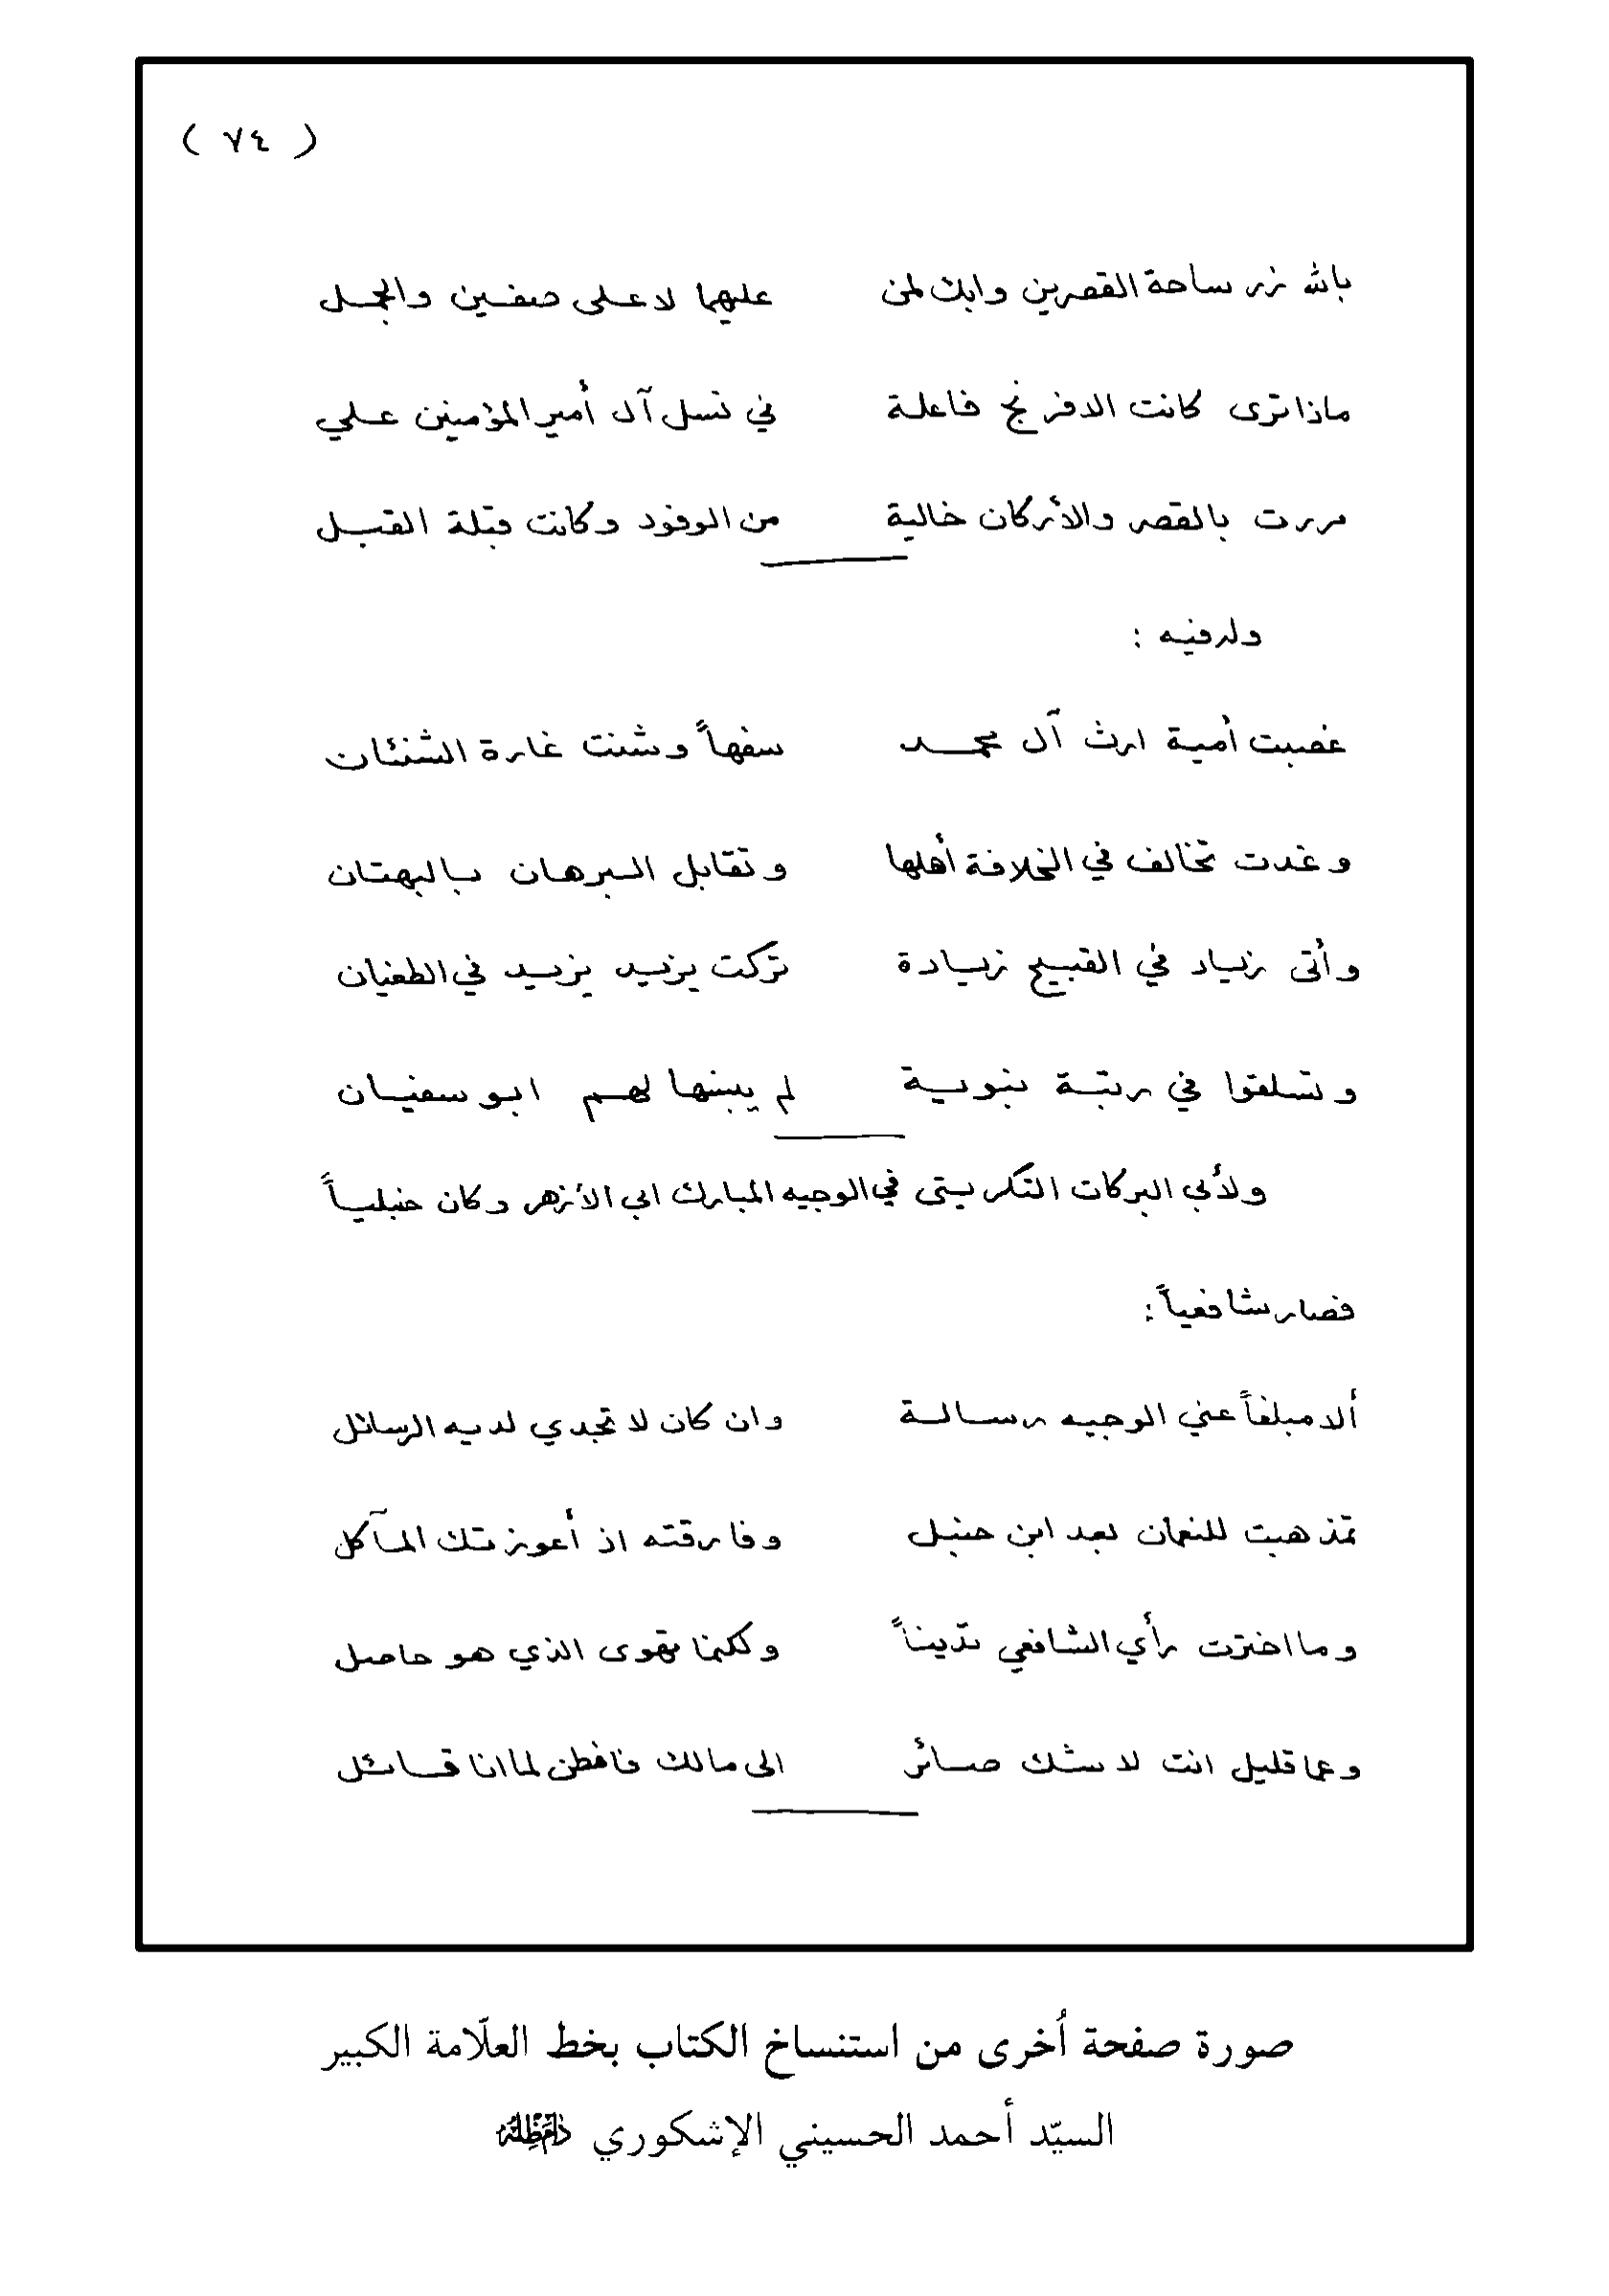 ( ٧٤ )
بالله زر ساحة القصرين وابك لمن عليهما لا على صفين والجمل
ماذا ترى كانت الافرنج فاعلة في نسل آل أمير المؤمنين علي
مررت بالقصر والأركان خالية من الوفود وكانت قبلة القبل
وله فيه :
غصبت أمية ارث آل محمد سفهاً وشنت غارة الشنئان
وغدت تخالف في الخلافة أهلها وتقابل البرهان بالبهتان
وأتى زياد في القبيح زيادة تركت يزيد يزيد في الطغيان
وتسلقوا في رتبة نبوية لم يبنها لهم ابو سفيان
ولأبي البركات التكريتي في الوجيه المبارك ابي الأزهر وكان حنبلياً
فصار شافعياً :
ألا مبلغاً عني الوجيه رسالة وان كان لا تجدي لديه الرسائل
تمذهبت للنعمان بعد ابن حنبل وفارقته اذ أعوزتك المآكل
وما اخترت رأي الشافعي تديناً ولكنما تهوى الذي هو حاصل
وعما قليل انت لا شك صائر الى مالك فافطن لما انا قائل
صورة صفحة أُخرى من استنساخ الكتاب بخط العلّامة الكبير
السيّد أحمد الحسيني الإشكوري دام ظله